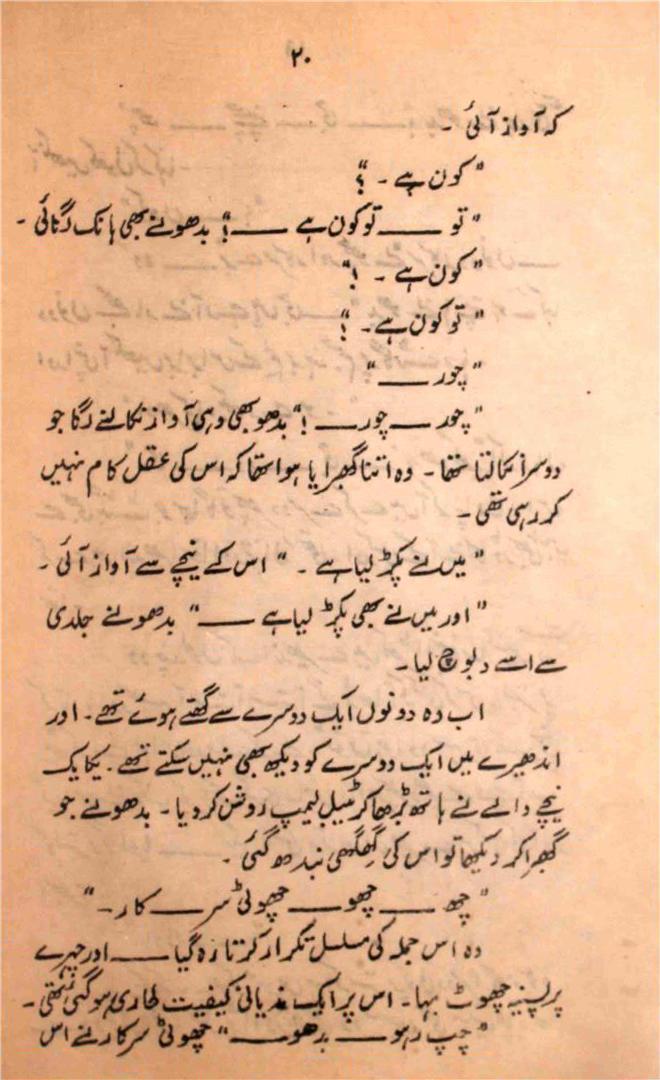 ۲۰
کہ آواز آئی ۔
" کون ہے ۔ ؟"
" تو ــــ تو کون ہے ــــ !" بدھو نے بھی ہانک لگائی ۔
" کون ہے ۔ !"
" تو کون ہے ۔ ؟"
" چور ــــ "
" چور ــــ چور ــــ !" بدھو بھی وہی آواز نکالنے لگا جو
دوسرا نکالتا تھا ۔ وہ اتنا گھبرایا ہوا تھا کہ اس کی عقل کام نہیں
کر رہی تھی ۔
" میں نے پکڑ لیا ہے ۔ " اس کے نیچے سے آواز آئی ۔
" اور میں نے بھی پکڑ لیا ہے ــــ " بدھو نے جلدی
سے اسے دبوچ لیا ۔
اب وہ دونوں ایک دوسرے سے گتھے ہوئے تھے ۔ اور
اندھیرے میں ایک دوسرے کو دیکھ بھی نہیں سکتے تھے ۔ یکایک
نیچے والے نے ہاتھ بڑھا کر ٹیبل لیمپ روشن کر دیا ۔ بدھو نے جو
گھبرا کر دیکھا تو اس کی گھگھی بندھ گئی ۔
" چھ ــــ چھو ــــ چھوٹی سر ــــ کار ۔ "
وہ اس جملہ کی مسلسل تکرار کرتا رہ گیا ــــ اور چہرے
پر پسینہ چھوٹ بہا ۔ اس پر ایک ہذیانی کیفیت طاری ہو گئی تھی ۔
" چپ رہو ــــ بدھو ــــ " چھوٹی سرکار نے اس